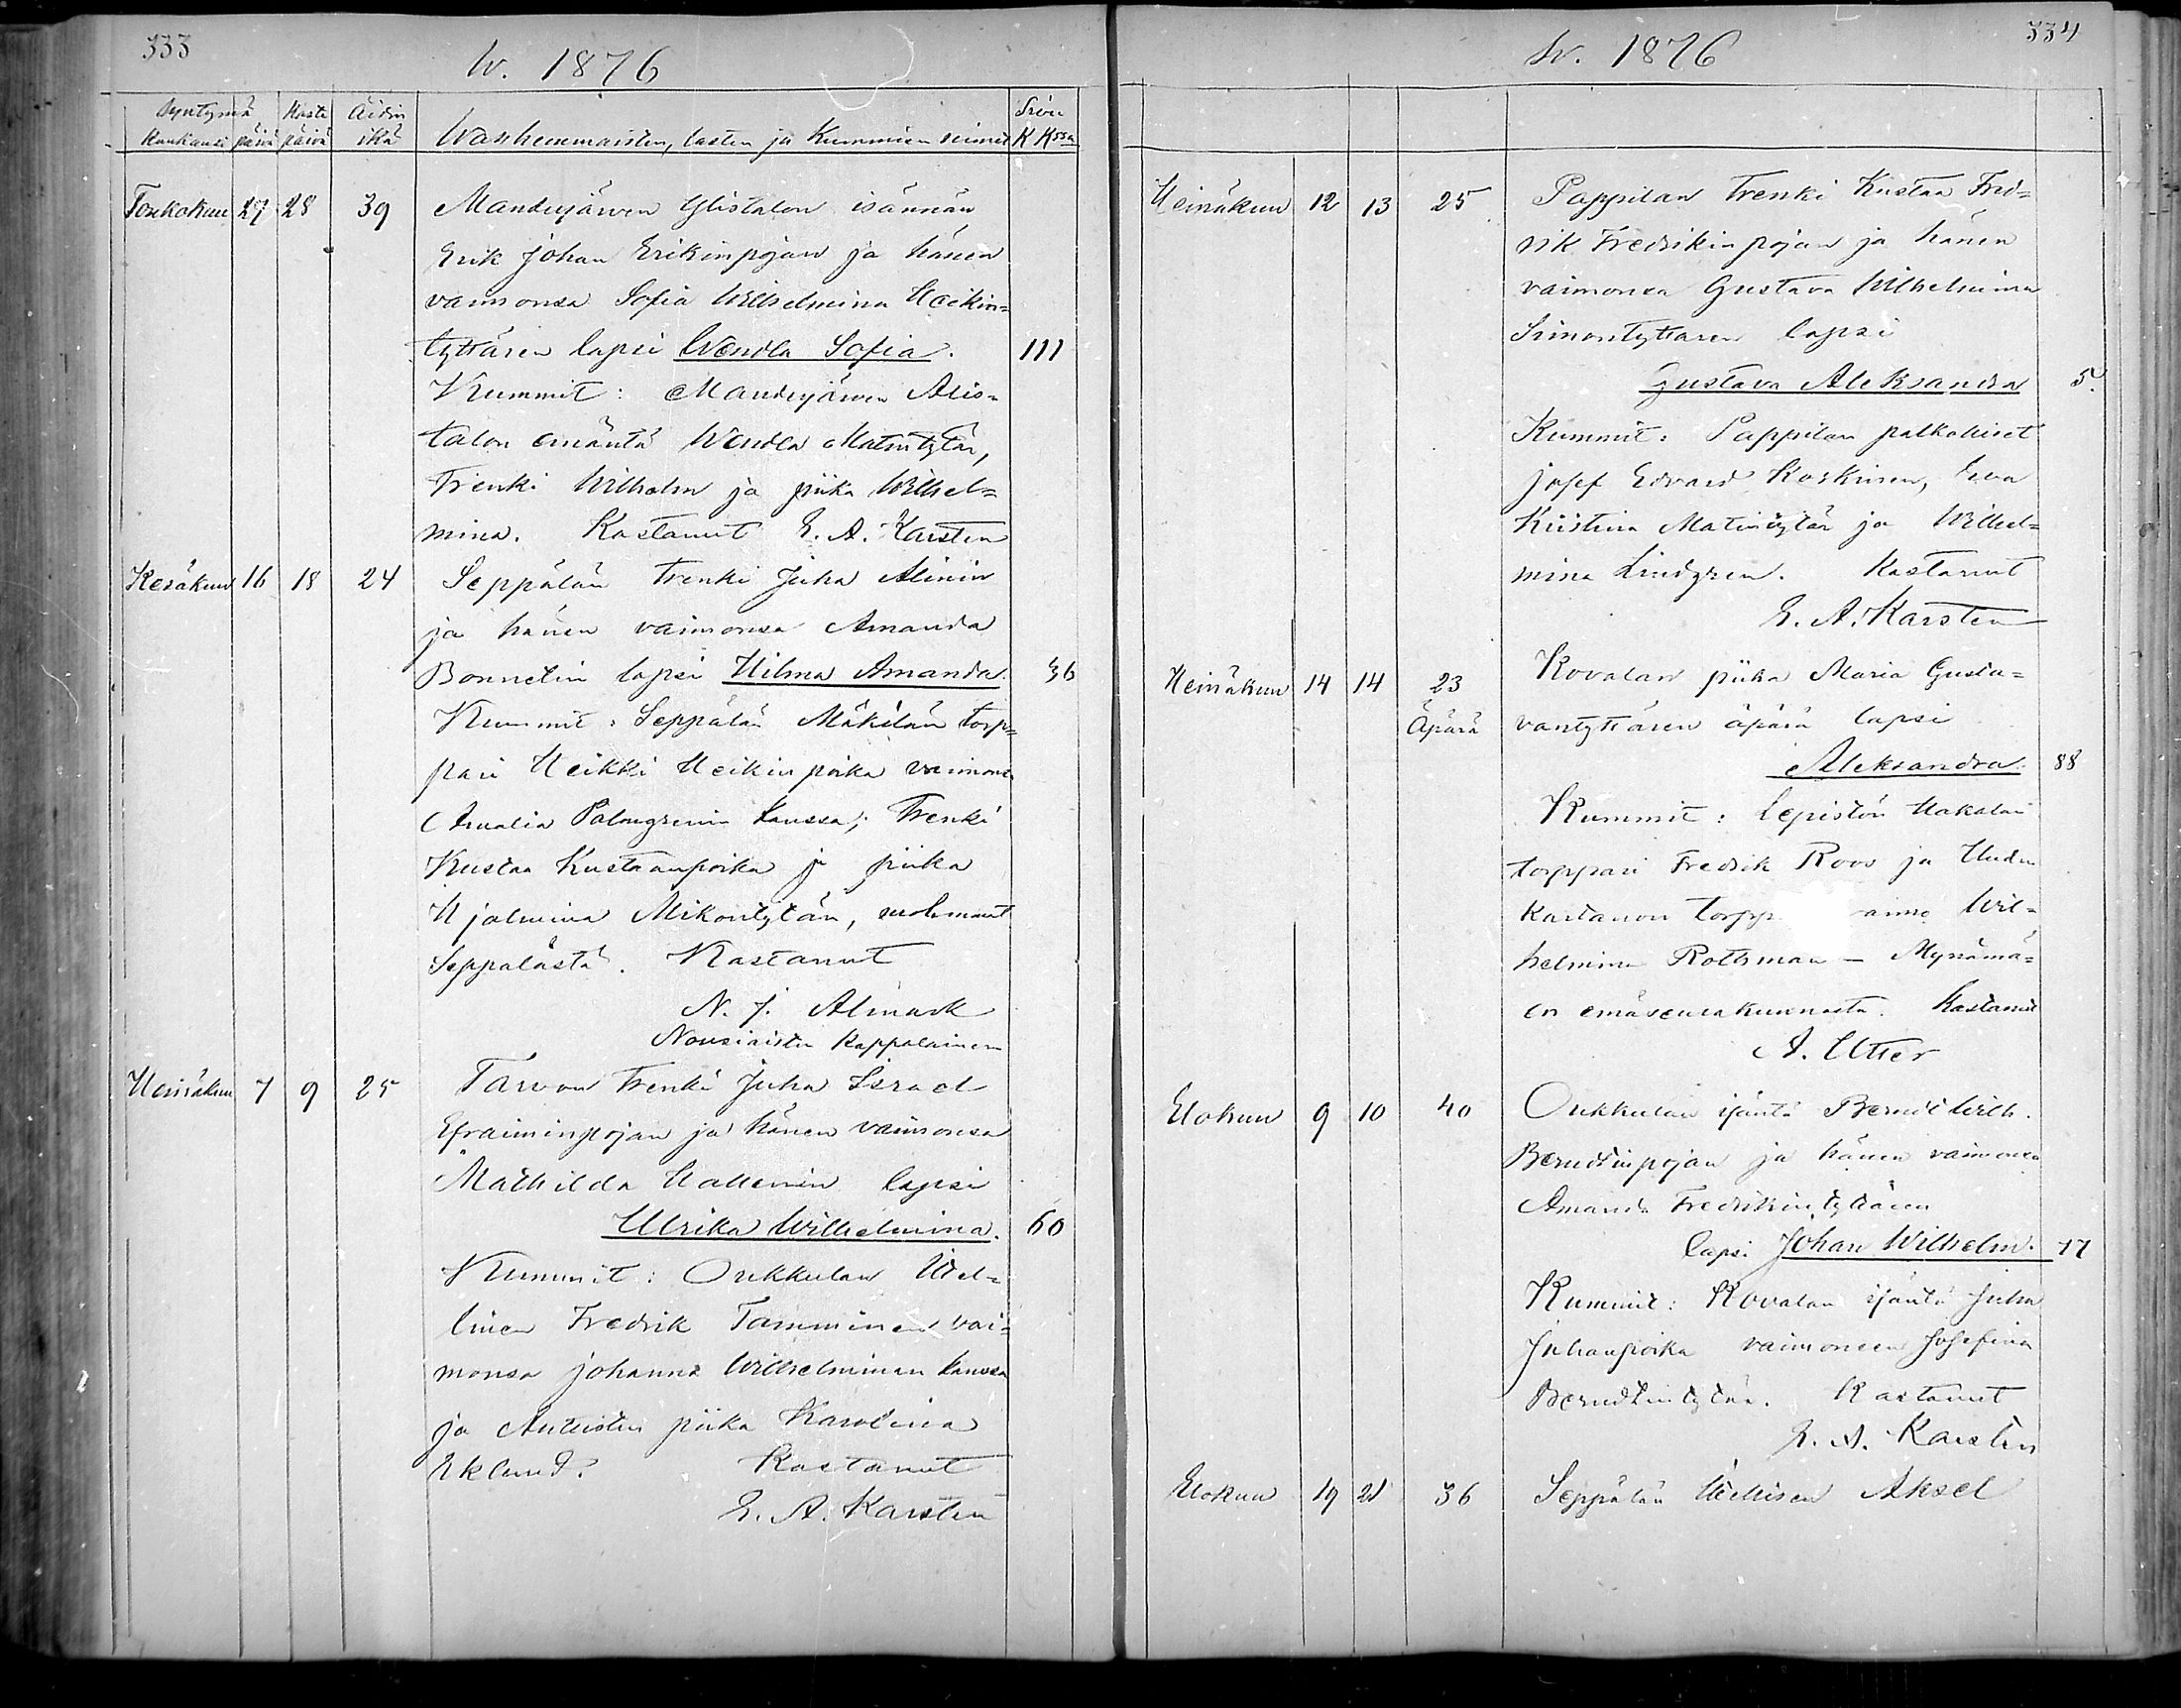 333
W. 1876
Syntymä Kaste Äidin Sivu
kuukausi päivä päivä ikä Wanhemmaisten, lasten ja Kummien nimet K Kssa
Toukokuu 27 28 39 Mandenjärven Ylistalon isännän
Erik Johan Erikinpojan ja hänen
vaimonsa Sofia Wilhelmina Heikin=
tyttären lapsi Wendla Sofia. 111
Kummit: Mandenjärven Alis=
talon emäntä Wendla Matintytär,
Trenki Wilhelm ja piika Wilhel=
mina. Kastanut E. A. Karsten
Kesäkuu 16 18 24 Seppälän trenki Juha Alinin
ja hänen vaimonsa Amanda
Bonnetin lapsi Hilma Amanda. 36
Kummit: Seppälän Mäkilän torp=
pari Heikki Heikinpoika vaimonsa
Amalia Palmgrenin kanssa; Trenki
Kustaa Kustaanpoika ja piika
Hjalmina Mikontytär, molemmat
Seppälästä. Kastanut
N. J. Almark
Nousiaisten Kappalainen
Heinäkuu 7 9 25 Tarvon trenki Juha Israel
Efraiminpojan ja hänen vaimonsa
Mathilda Hallenin lapsi
Ulrika Wilhelmina. 60
Kummit: Oukkulan Itel=
linen Fredrik Tamminen vai=
monsa Johanna Wilhelminan kanssa
ja Anteisten piika Karolina
Eklund. Kastanut
E. A. Karsten
334
W. 1876
Heinäkuu 12 13 25 Pappilan trenki Kustaa Fred=
rik Fredrikinpojan ja hänen
vaimonsa Gustava Wilhelmina
Simontyttären lapsi
Gustava Aleksandra 5.
Kummit: Pappilan palkolliset
Josef Edvard Koskinen, Eva
Kristina Matintytär ja Wilhel=
mina Lindgren. Kastanut
E. A. Karsten
Heinäkuu 14 14 23 Kovalan piika Maria Gusta=
Äpärä vantyttären äpärä lapsi
Aleksandra. 88
Kummit: Lepistön Hakalan
torppari Fredrik Roos ja Uuden
Kartanon torpp aimo Wil=
helmina Rothman – Mynämä=
en emäseurakunnasta. Kastanut
A. Utter
Elokuu 9 10 40 Oukkulan isäntä Berndt Wilh.
Berndtinpojan ja hänen vaimonsa
Amanda Fredrikintyttären
lapsi Johan Wilhelm. 77
Kummit: Kovalan isäntä Juha
Juhanpoika vaimonsa Josefina
Berndtintytär. Kastanut
E. A. Karsten
Elokuu 19 21 36 Seppälän Itellisen Aksel